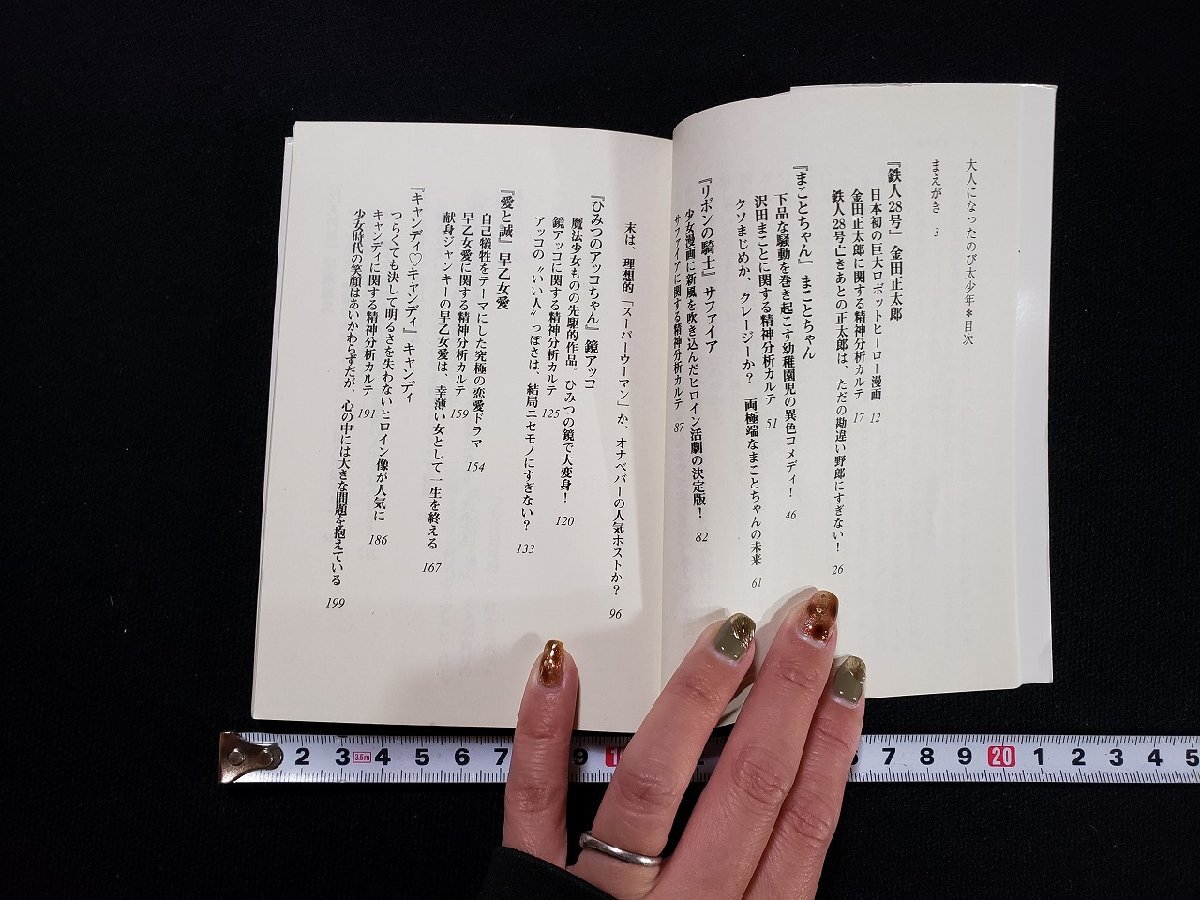 大人になったのび太少年＊目次
まえがき 3
『鉄人28号』金田正太郎
日本初の巨大ロボットヒーロー漫画 12
金田正太郎に関する精神分析カルテ 17
鉄人28号亡きあとの正太郎は、ただの勘違い野郎にすぎない！ 26
『まことちゃん』まことちゃん
下品な騒動を巻き起こす幼稚園児の異色コメディ！ 46
沢田まことに関する精神分析カルテ 51
クソまじめか、クレージーか？ 両極端なまことちゃんの未来 61
『リボンの騎士』サファイア
少女漫画に新風を吹き込んだヒロイン活劇の決定版！ 82
サファイアに関する精神分析カルテ 87
末は、理想的「スーパーウーマン」か、オナベバーの人気ホストか？ 96
『ひみつのアッコちゃん』鏡アッコ
魔法少女ものの先駆的作品、ひみつの鏡で大変身！ 120
鏡アッコに関する精神分析カルテ 125
アッコの〝いい人〟っぽさは、結局ニセモノにすぎない？ 132
『愛と誠』早乙女愛
自己犠牲をテーマにした究極の恋愛ドラマ 154
早乙女愛に関する精神分析カルテ 159
献身ジャンキーの早乙女愛は、幸薄い女として一生を終える 167
『キャンディ♡キャンディ』キャンディ
つらくても決して明るさを失わないヒロイン像が人気に 186
キャンディに関する精神分析カルテ 191
少女時代の笑顔はあいかわらずだが、心の中には大きな問題を抱えている 199
2 3 3.6m 4 5 6 7 9 7 8 9 20 1 2 3 4 5